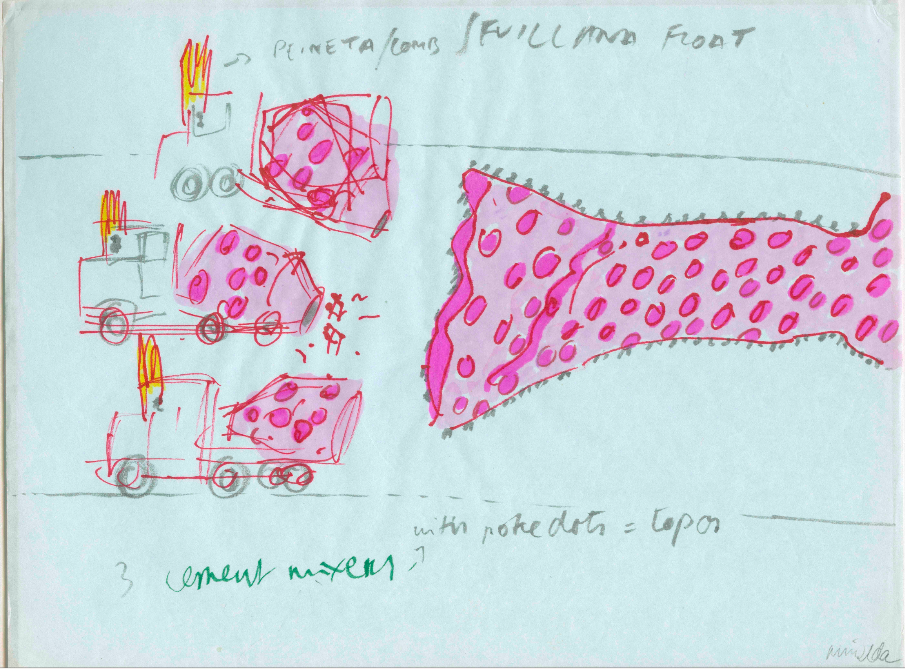 → PEINETA/COMB / SEVILLANA FLOAT
with poke dots = topos
3 cement mixers ↗